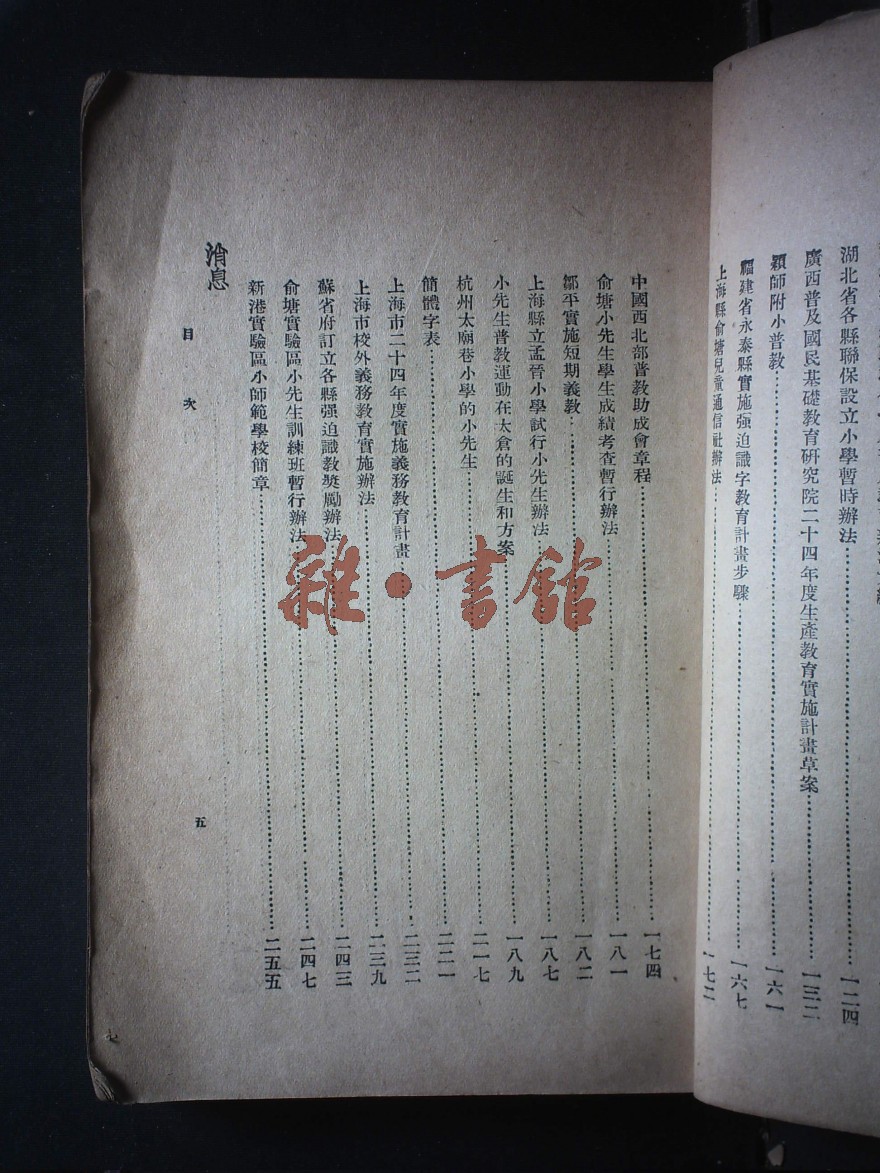 湖北省各縣聯保設立小學暫時辦法……一二四
廣西普及國民基礎教育研究院二十四年度生產教育實施計畫草案……一三二
穎師附小普教……一六一
福建省永泰縣實施强迫識字教育計畫步驟……一六七
上海縣俞塘兒童通信社辦法……一七二
中國西北部普教助成會章程……一七四
俞塘小先生學生成績考查暫行辦法……一八一
鄒平實施短期義教……一八二
上海縣立孟晉小學試行小先生辦法……一八七
小先生普教運動在太倉的誕生和方案……一八九
杭州太廟巷小學的小先生……二一七
簡體字表……二二一
上海市二十四年度實施義務教育計畫……二三二
上海市校外義務教育實施辦法……二三九
蘇省府訂立各縣强迫識教獎勵辦法……二四三
俞塘實驗區小先生訓練班暫行辦法……二四七
新港實驗區小師範學校簡章……二五五
消息
目次
五
雜·書館